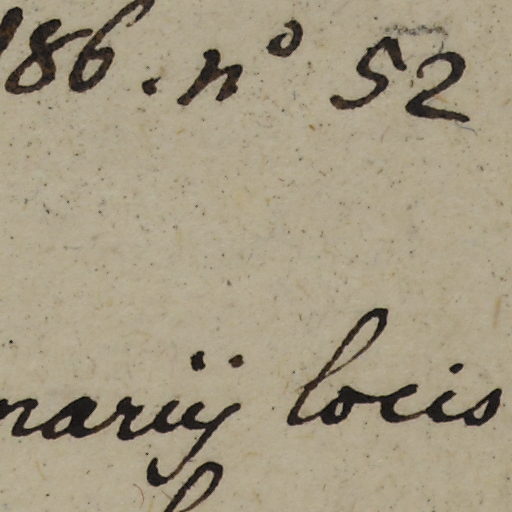 186. nº 52
narijs locis